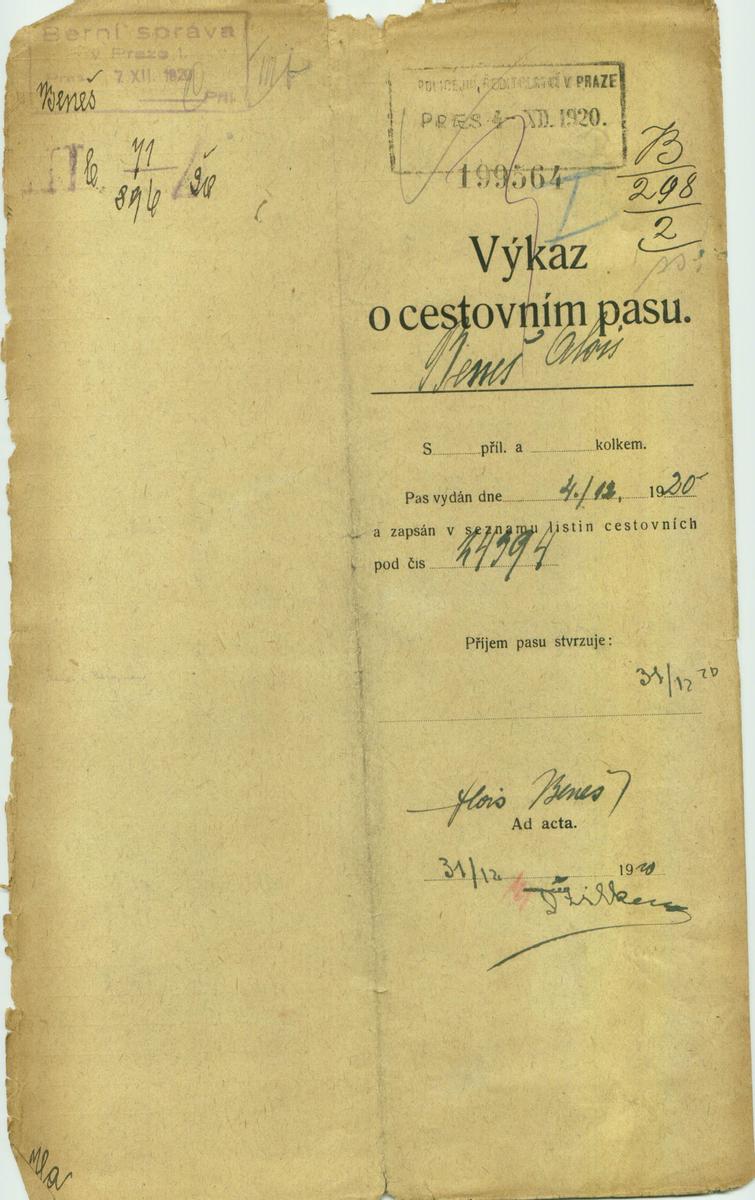 Berní správa
v Praze I.
7 XII. 1920
Příl.
Beneš
71
896
POLICEJNÍ ŘEDITELSTVÍ V PRAZE
PRES 4-XII.1920.
199564
I
B
298
2
Výkaz
o cestovním pasu.
Beneš Alois
S příl. a kolkem.
Pas vydán dne 4./12, 1920
a zapsán v seznamu listin cestovních
pod čís 24394
Příjem pasu stvrzuje:
31/12 20
Alois Beneš
Ad acta.
31/12 1920